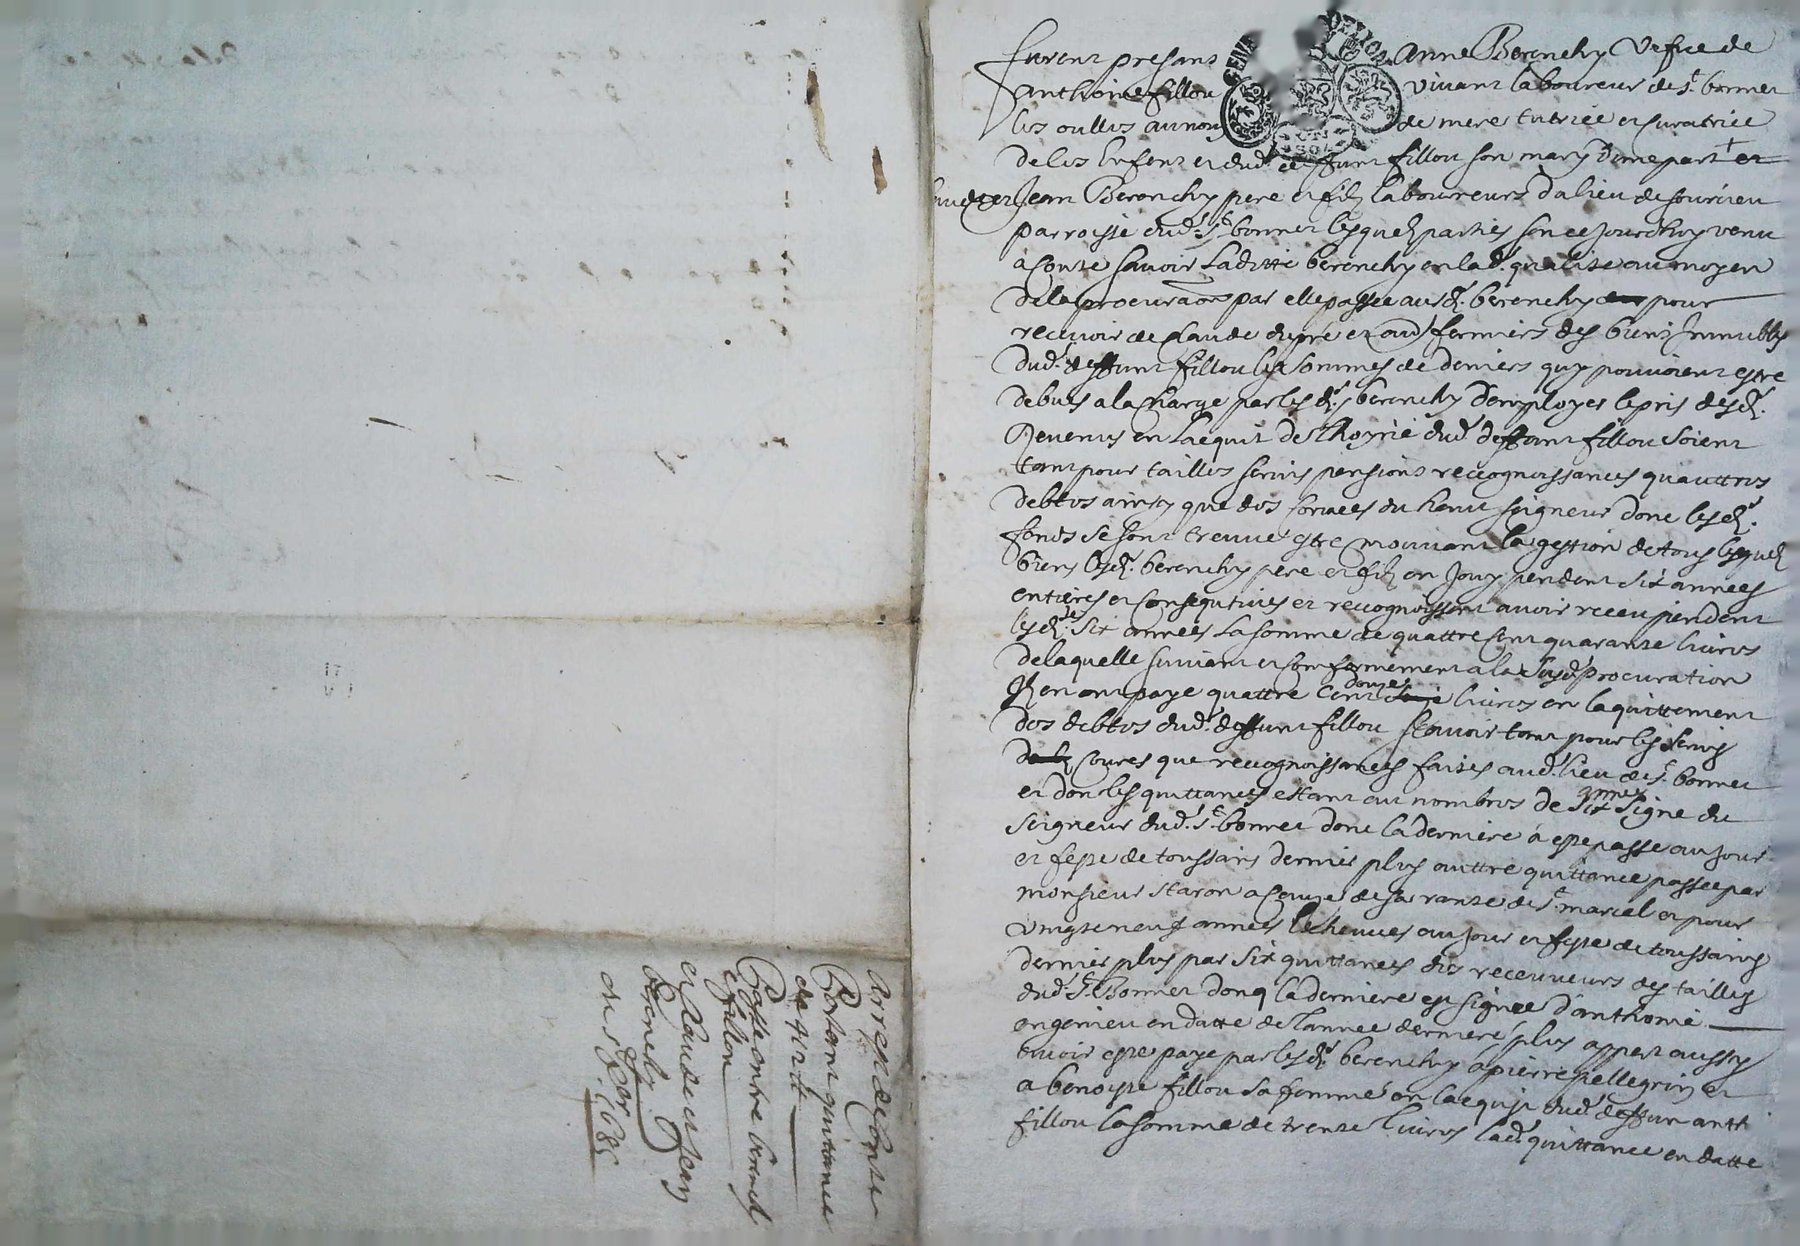 furent presans Anne Berenchy Vefve de
Anthoine fillou vivant laboureur de St. bonnet
les oulles au nom de mere tutrice et curatrice
de les Enfent et dud. deffunt fillou son mary d'une part et
Jean Berenchy pere et filz laboureurs da lieu de sourcieu
parroisse dud. St. bonnet lesquelz parties son ce Jourdhuy venu
a Conte savoir Laditte berenchy en lad. qualite au moyen
de la procuraon par elle passee ausd. berenchy pour
recevoir de Claude dupre et aud fermiers des biens Immubles
dud. deffunt fillou les sommes de deniers quy pouvoient estre
debues a la Charge par lesd. berenchy d'employer le pris desd.
Revenus en Laequit de Lhoyrie dud. deffunt fillou soient
tant pour tailles servis pensions reccognoissances quauttres
debtes ainsy que des corvees du haut seigneur dont lesd.
fonds se sont treuve estre mouvant la gestion de tous lesquelz
biens lesd. berenchy pere et filz en Jouy pendent six annees
entieres et consequtives et reccognoissent avoir receu pendent
lesd. six annees la somme de quattre cent quarante livres
de laquelle suivant et conformement a la susd. procuration
Ilz en ont paye quattre cent douze livres en laquittement
des debtes dud. deffunt fillou scavoir tant pour les servis
coures que reccognoissances faites aud. lieu de St. bonnet
et don les quittances estant au nombres de six signe du
annes
seigneur dud. St. bonnet dont la derniere a este passe au jour
et feste de toussains dernier plus auttre quittance passee par
monsieur staron a cause de sa rante de St. marcel et pour
vingt neuf annees Echeuues au jour et feste de toussains
dernier plus par six quittances des receuveurs des tailles
dud. St. Bonnet donq la derniere est signee d'anthoine
engenieu en datte de lannee derniere plus appert aussy
avoir este paye par lesd. berenchy a pierre pellegrin et
a benoiste fillou sa femme en lacquit dud. deffun anth
fillou la somme de trente livres lad. quittance en datte
Arrest de Conte
Portant quittance
de 412 ℔
Passe entre berench
fillou
et Claude et Jean
berenchy
du 8bre 1685